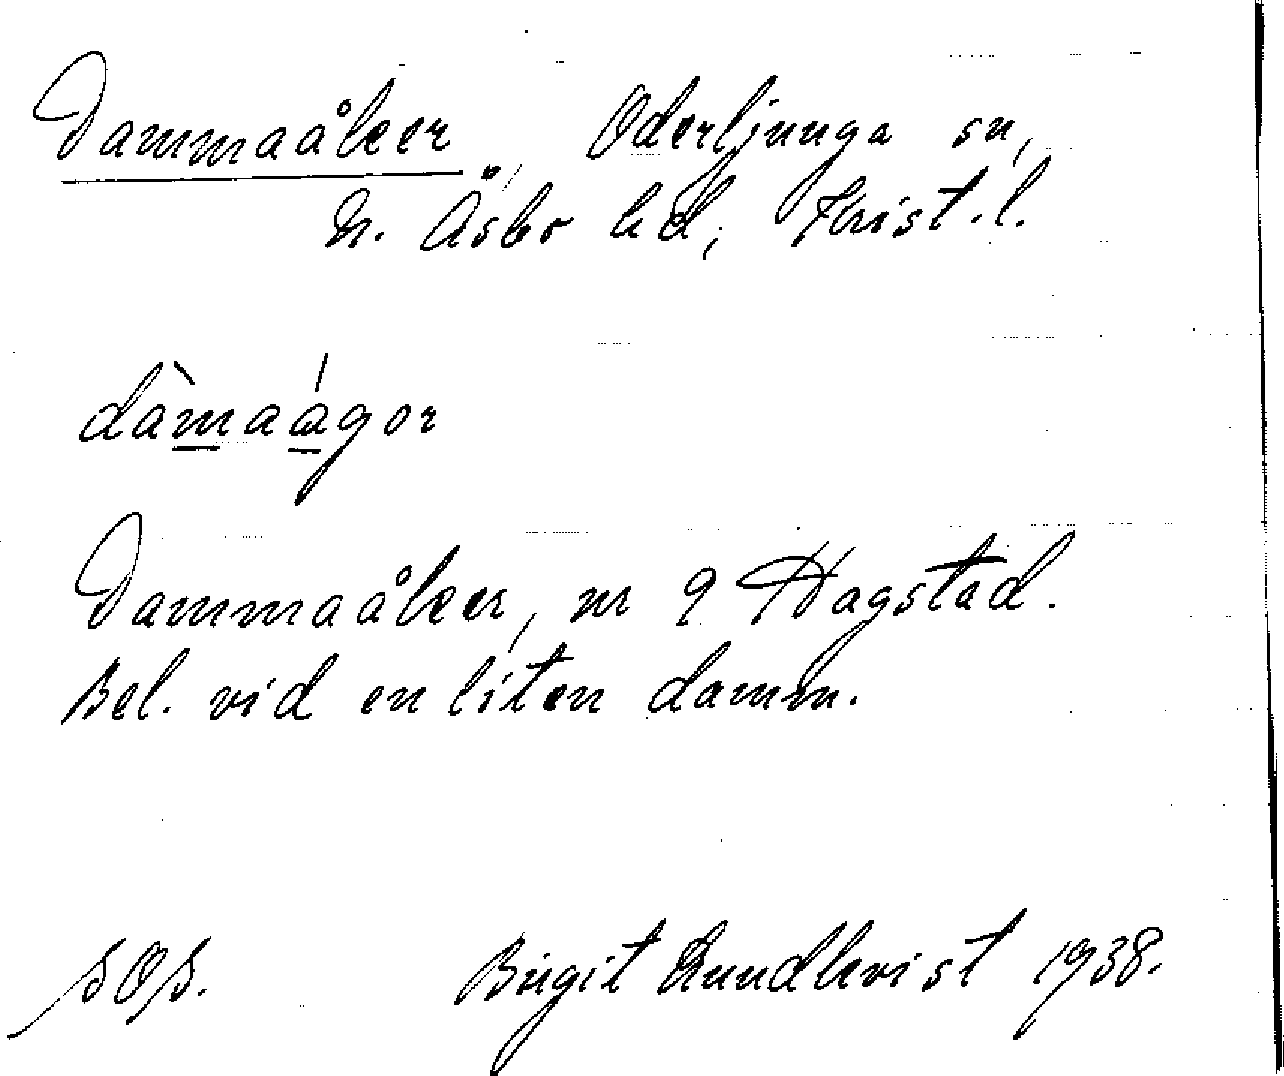 Dammaåker, Oderljunga sn,
N. Åsbo hd, Krist. l.
dàmaágor
Dammaåker, nr 9 Hagstad.
Bel. vid en liten damm.
Birgit Lundkvist 1938.